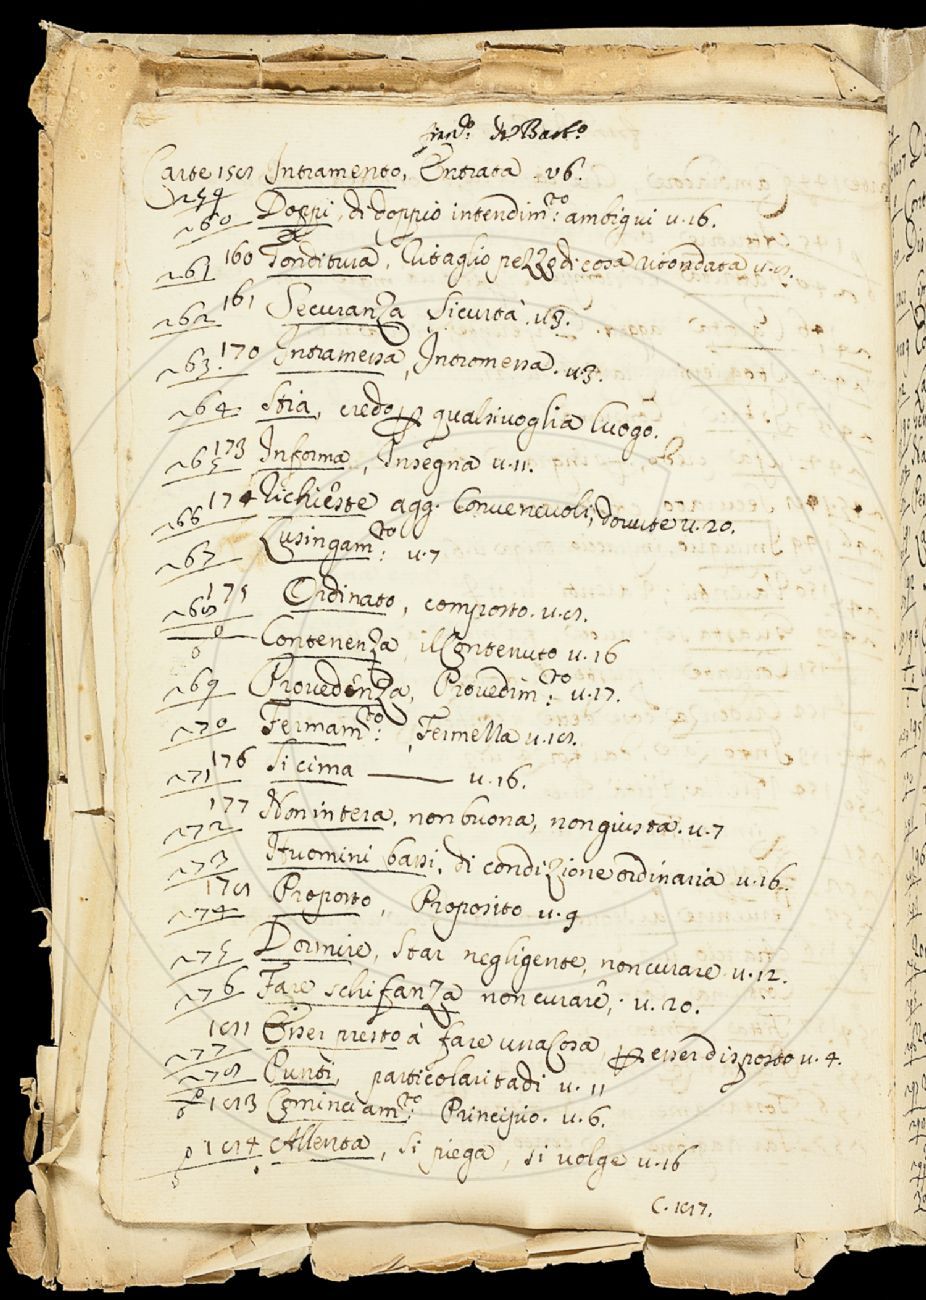 Carte 158 Intramento, Entrata v6.
259
260 Doppi, di doppio intendim.to ambigui v.16.
261 160 Tonditura, Ritaglio pezze di cosa ritondata v.8.
262 161 Securanza Sicurtà. v3.
263. 170 Intramessa, Intromessa. v3.
264. Stia, credo per qualsivoglia luogo.
265 173 Informa, Insegna v.11.
266 174 Richieste agg. Convenevoli, dovute v.20.
267 Lusingam.to v.7
268 175 Ordinato, composto. v.8.
Contenenza, il Contenuto v.16
269 Provedenza, Provedim.to v.17.
270 Fermam.to, Fermessa v.18.
271 176 Si cima v.16.
272 177 Non intera, non buona, non giusta. v.7
273 Huomini bassi, di condizione ordinaria v.16.
274 178 Proposto, Proposito v.9
275 Dormire, star negligente, non curare v.12.
276 Fare schifanza non curare. v.20.
277 181 Esser presto à fare una Cosa per esser disposto v.4.
278 Punti, particolaritadi v.11
183 Cominciam.to Principio. v.6.
184 Allenta, si piega, si volge v.16
C.187.